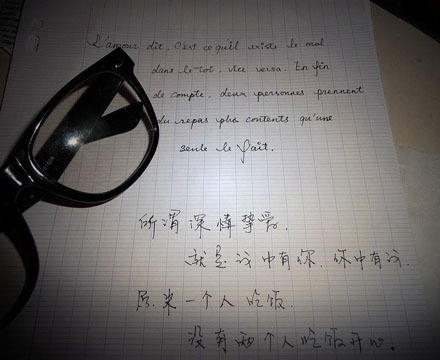 L'amour dit, C'est ce qu'il existe le mal
dans le toi, vice versa. En fin
de compte, deux personnes prennent
du repas plus contents qu'une
seule le fait.
所谓深情挚爱,
就是我中有你, 你中有我.
原来一个人吃饭
没有两个人吃饭开心.